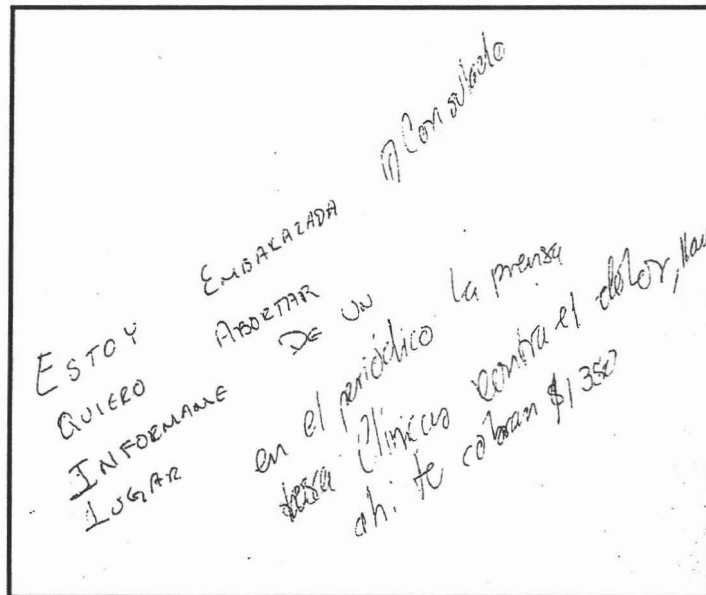 ESTOY EMBARAZADA
QUIERO ABORTAR
INFORMAME DE UN
LUGAR
en el periódico la prensa
Clinicas contra el dolor,
ahi te cobran $1350